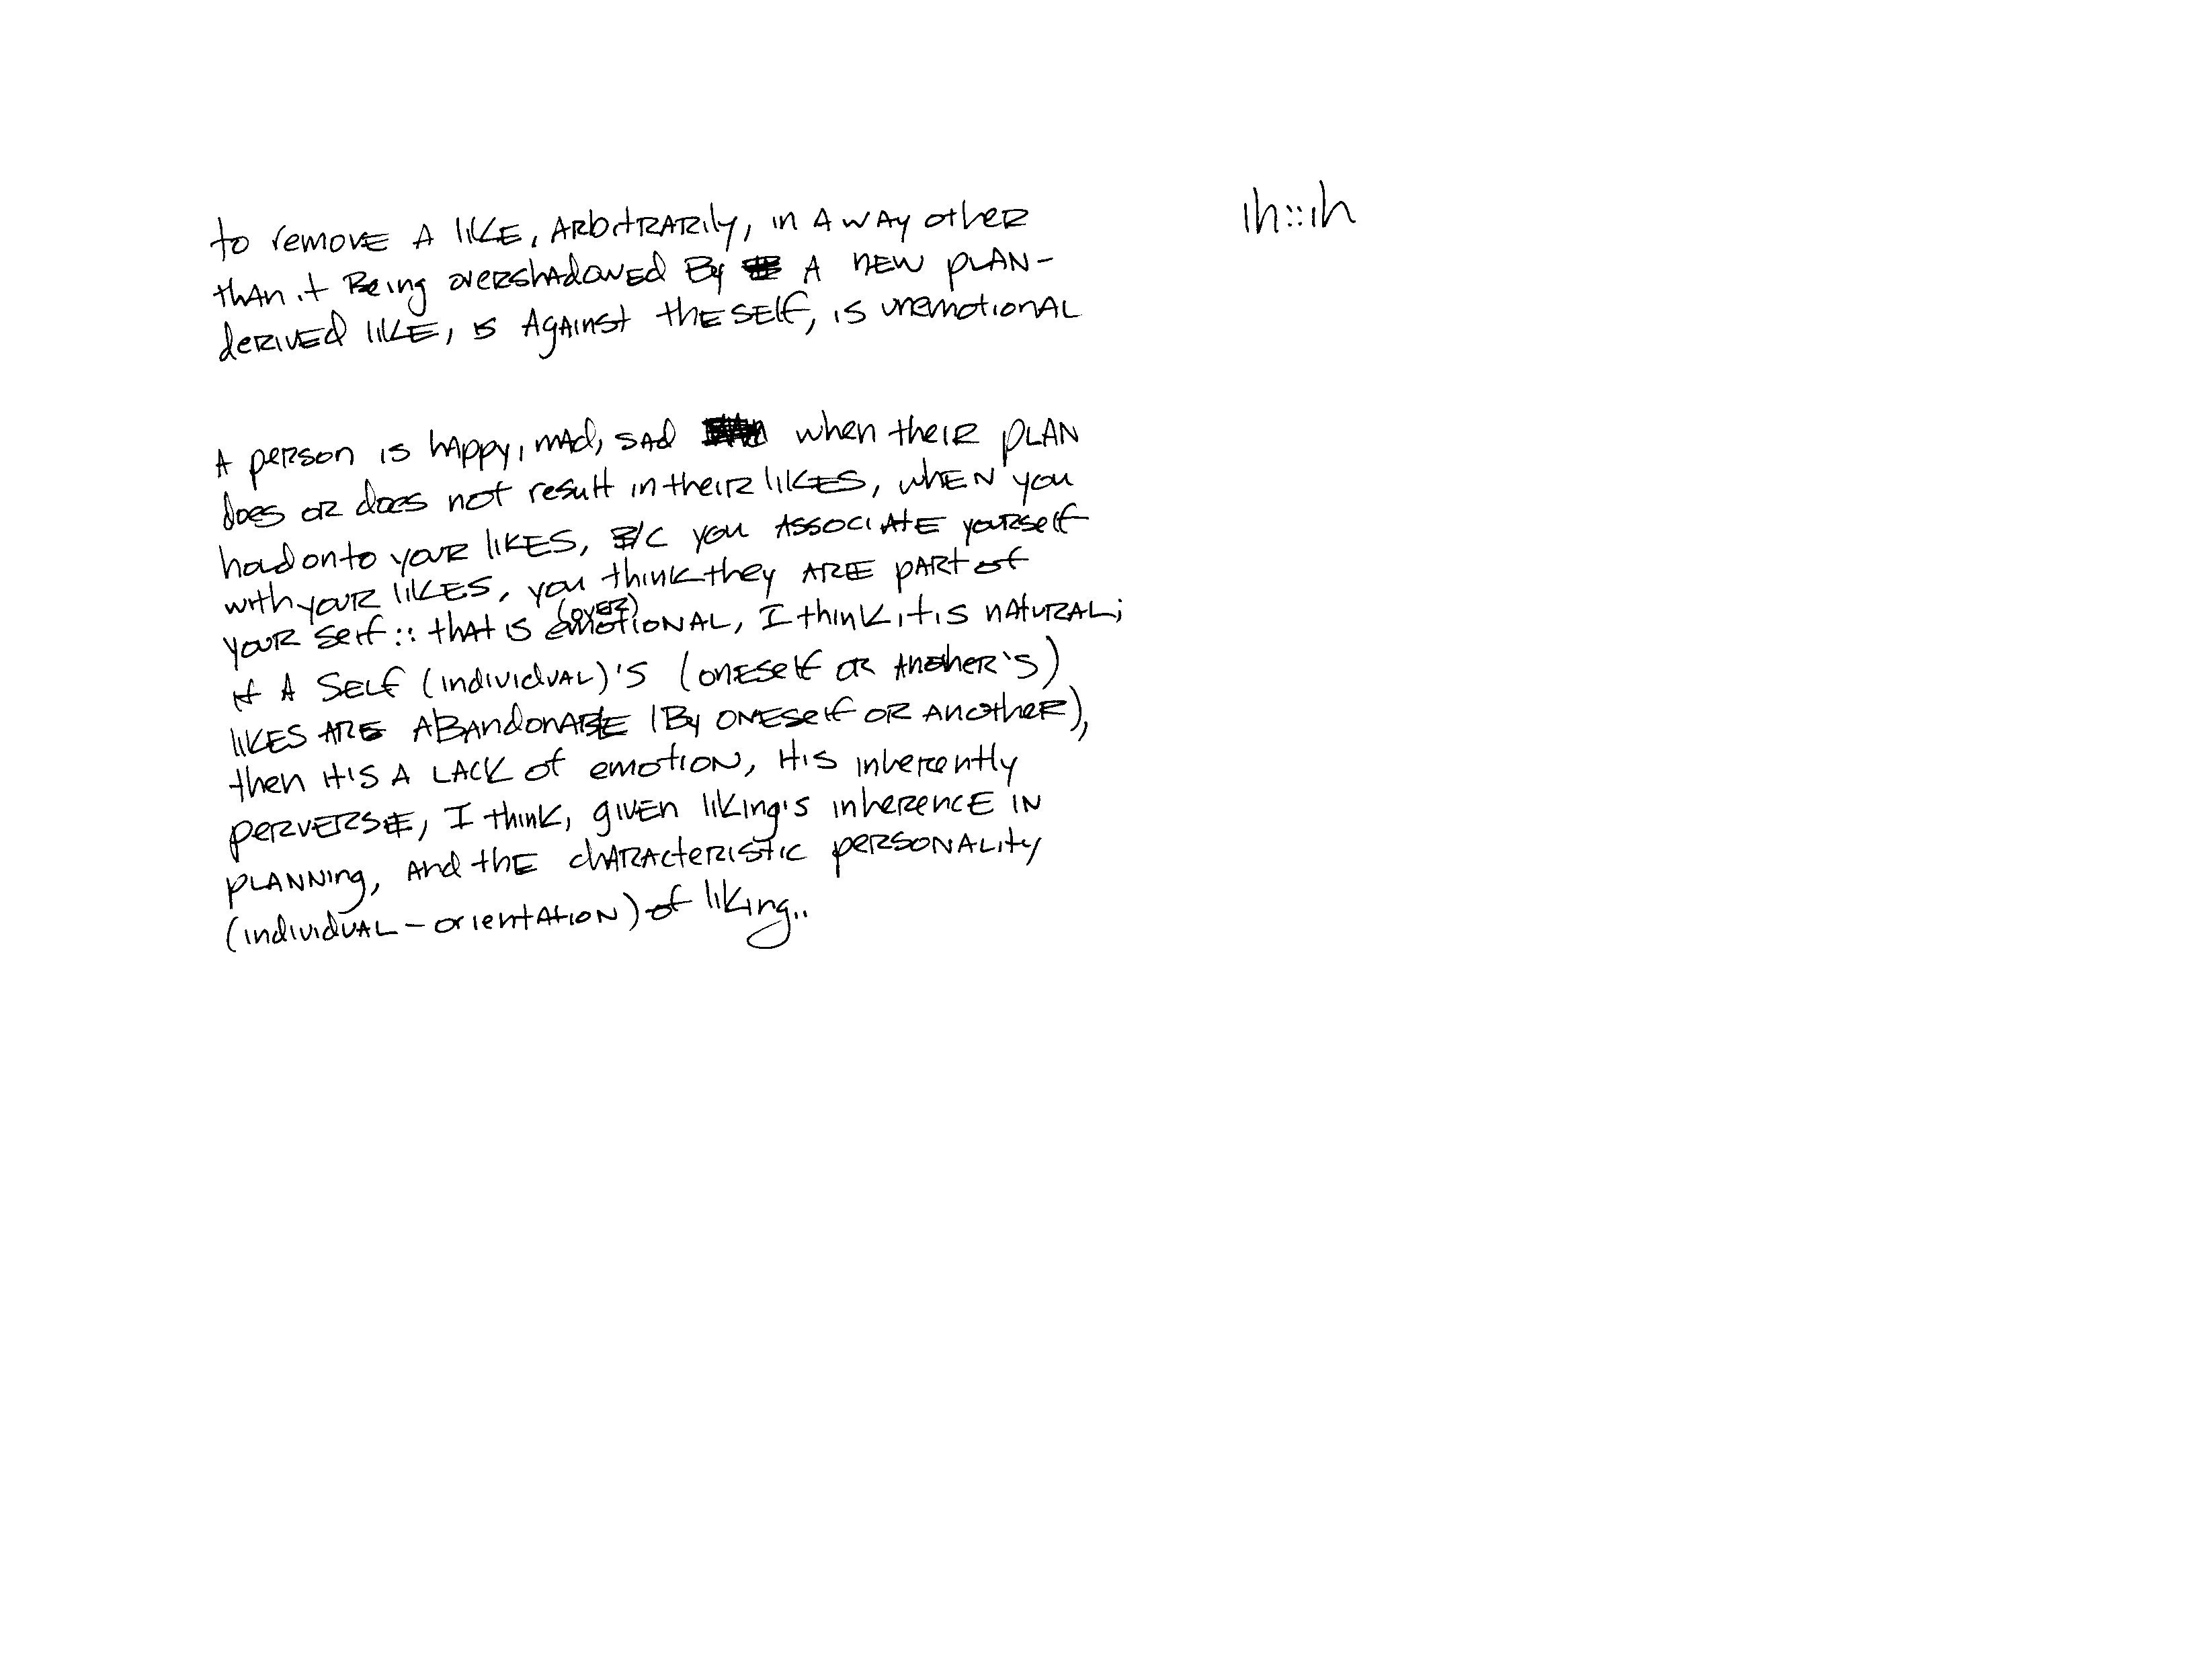 to remove A like, Arbitrarily, in A way other
than it Being overshadowed By A new plan-
derived like, is Against the self, is unemotional
A person is happy, mad, sad when their plan
does or does not result in their likes, when you
hold onto your likes, B/C you Associate yourself
with your likes, you think they are part of
your self :: that is (over)emotional, I think, it is natural;
if A self (individual)'s (oneself or Another's)
likes are Abandonable (By oneself or Another),
then it's A lack of emotion, it is inherently
perverse, I think, given liking's inherence in
planning, and the characteristic personality
(individual-orientation) of liking..
ih::ih